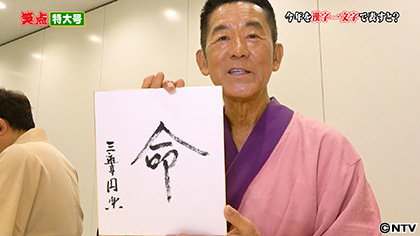 笑点 特大号
今年を漢字一文字で表すと?
命
三遊亭円楽
©NTV